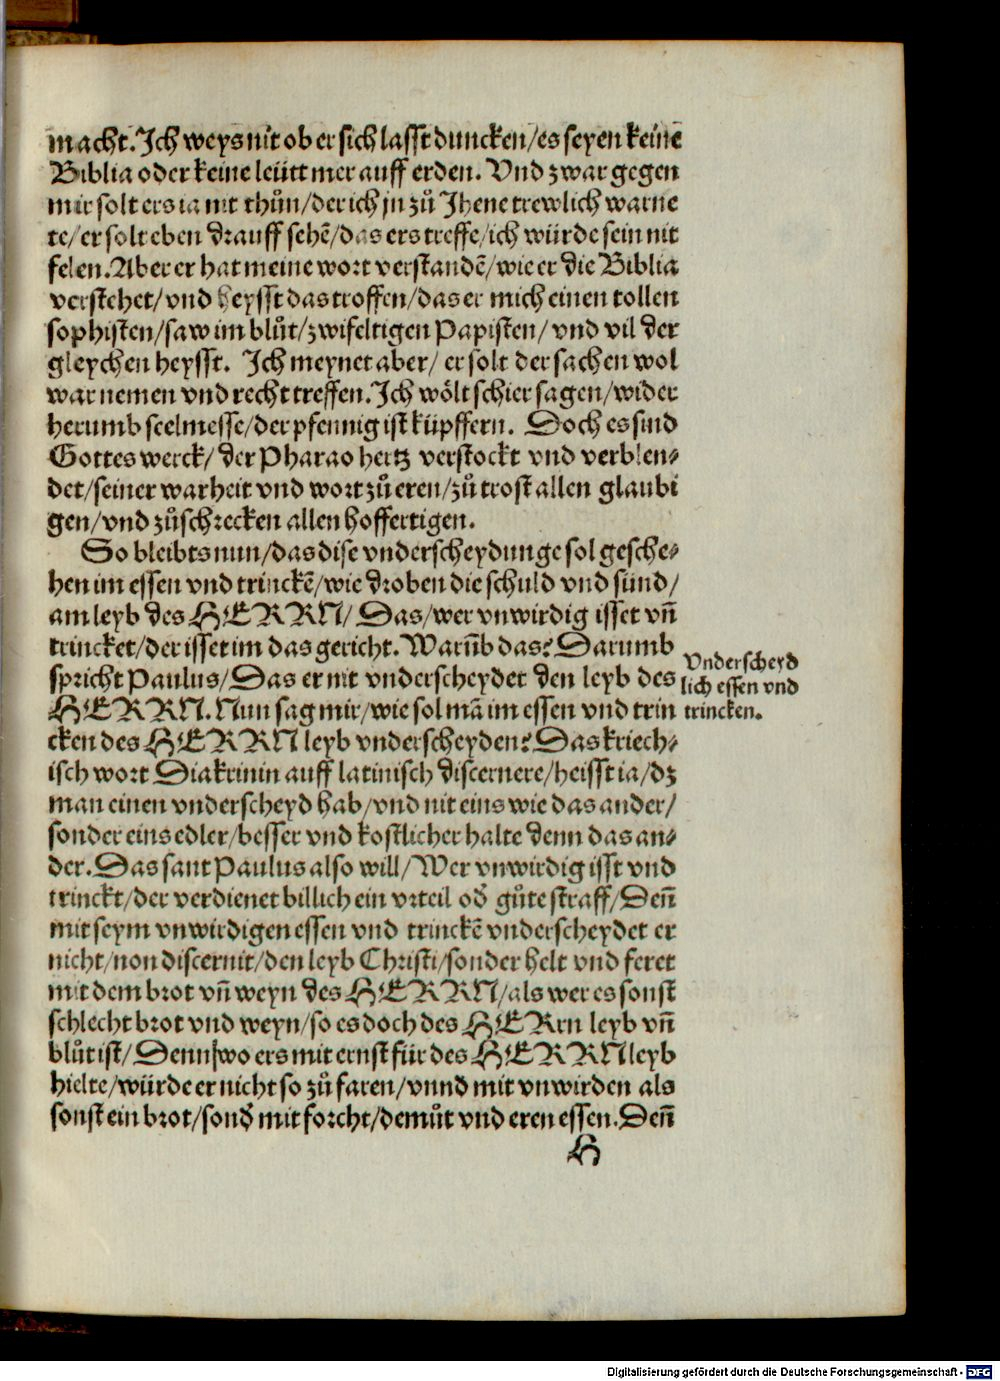 macht. Ich weys nit ob er sich lasst duncken/es seyen keine
Biblia oder keine leütt mer auff erden. Vnd zwar gegen
mir solt ers ia nit thůn/der ich jn zů Ihene trewlich warne
te/er solt eben drauff sehē/das ers treffe/ich würde sein nit
felen. Aber er hat meine wort verstandē/wie er die Biblia
verstehet/vnd heysst das troffen/das er mich einen tollen
sophisten/saw im blůt/zwifeltigen Papisten/vnd vil der
gleychen heysst. Ich meynet aber/ er solt der sachen wol
war nemen vnd recht treffen. Ich wölt schier sagen/wider
herumb seelmesse/der pfennig ist küpffern. Doch es sind
Gottes werck/ der Pharao hertz verstockt vnd verblen⸗
det/seiner warheit vnd wort zů eren/zů trost allen glaubi
gen/vnd zů schrecken allen hoffertigen.
So bleibts nun/das dise vnderscheydunge sol gesche⸗
hen im essen vnd trinckē/wie droben die schuld vnd sünd/
am leyb des HERRN/ Das/wer vnwirdig isset vñ
trincket/der isset im das gericht. Warūb das? Darumb
spricht Paulus/Das er nit vnderscheydet den leyb des
HERRN. Nun sag mir/wie sol mā im essen vnd trin
cken des HERRN leyb vnderscheyden? Das kriech⸗
isch wort Diakrinin auff latinisch discernere/heisst ia/dz
man einen vnderscheyd hab/vnd nit eins wie das ander/
sonder eins edler/besser vnd kostlicher halte denn das an⸗
der. Das sant Paulus also will/Wer vnwirdig isst vnd
trinckt/der verdienet billich ein vrteil od' gůte straff/Deñ
mit seym vnwirdigen essen vnd trinckē vnderscheydet er
nicht/non discernit/den leyb Christi/sonder helt vnd feret
mit dem brot vñ weyn des HERRN/als wer es sonst
schlecht brot vnd weyn/so es doch des HERrn leyb vñ
blůt ist/Denn wo ers mit ernst für des HERRN leyb
hielte/würde er nicht so zů faren/vnnd mit vnwirden als
sonst ein brot/sond' mit forcht/demůt vnd eren essen. Deñ
H
Vnderscheyd
lich essen vnd
trincken.
Digitalisierung gefördert durch die Deutsche Forschungsgemeinschaft - DFG